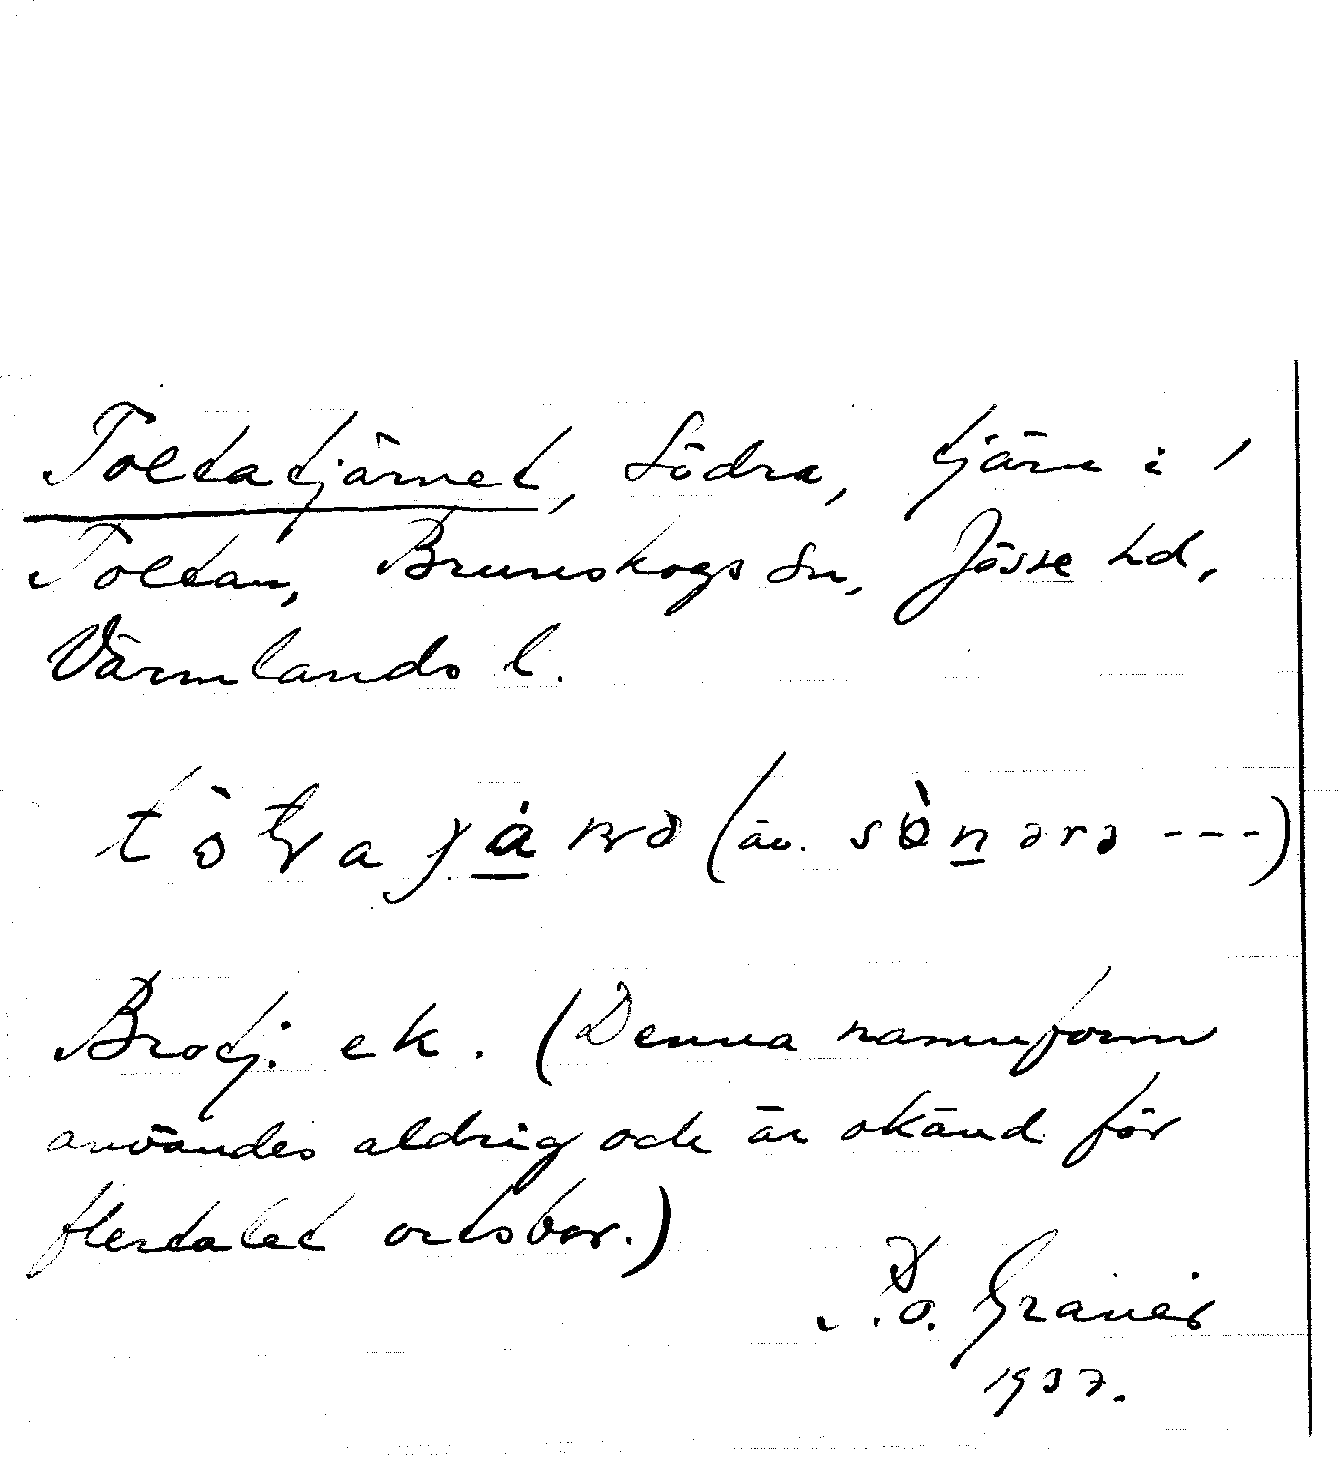 Toltatjärnet, Södra, tjärn i
Toltan, Brunskogs sn, Jösse hd,
Värmlands l.
(äv. --- )
Brotj. ek. (Denna namnform
användes aldrig och är okänd för
flertalet ortsbor.)
P.O. Granér
1937.